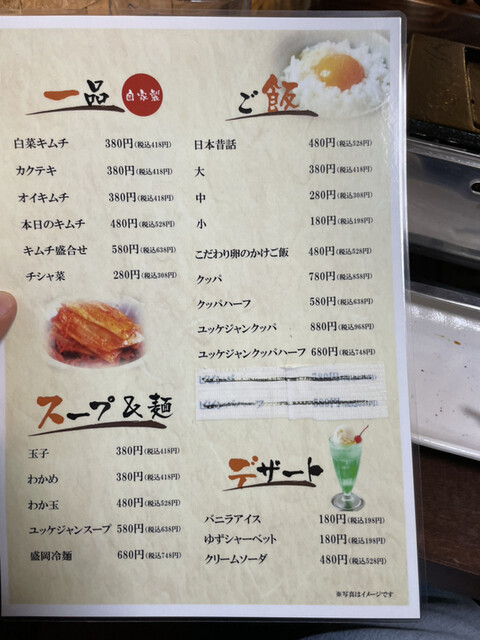 一品
自家製
白菜キムチ 380円(税込418円)
カクテキ 380円(税込418円)
オイキムチ 380円(税込418円)
本日のキムチ 480円(税込528円)
キムチ盛合せ 580円(税込638円)
チシャ菜 280円(税込308円)
スープ&麺
玉子 380円(税込418円)
わかめ 380円(税込418円)
わか玉 480円(税込528円)
ユッケジャンスープ 580円(税込638円)
盛岡冷麺 680円(税込748円)
ご飯
日本昔話 480円(税込528円)
大 380円(税込418円)
中 280円(税込308円)
小 180円(税込198円)
こだわり卵のかけご飯 480円(税込528円)
クッパ 780円(税込858円)
クッパハーフ 580円(税込638円)
ユッケジャンクッパ 880円(税込968円)
ユッケジャンクッパハーフ 680円(税込748円)
デザート
バニラアイス 180円(税込198円)
ゆずシャーベット 180円(税込198円)
クリームソーダ 480円(税込528円)
※写真はイメージです